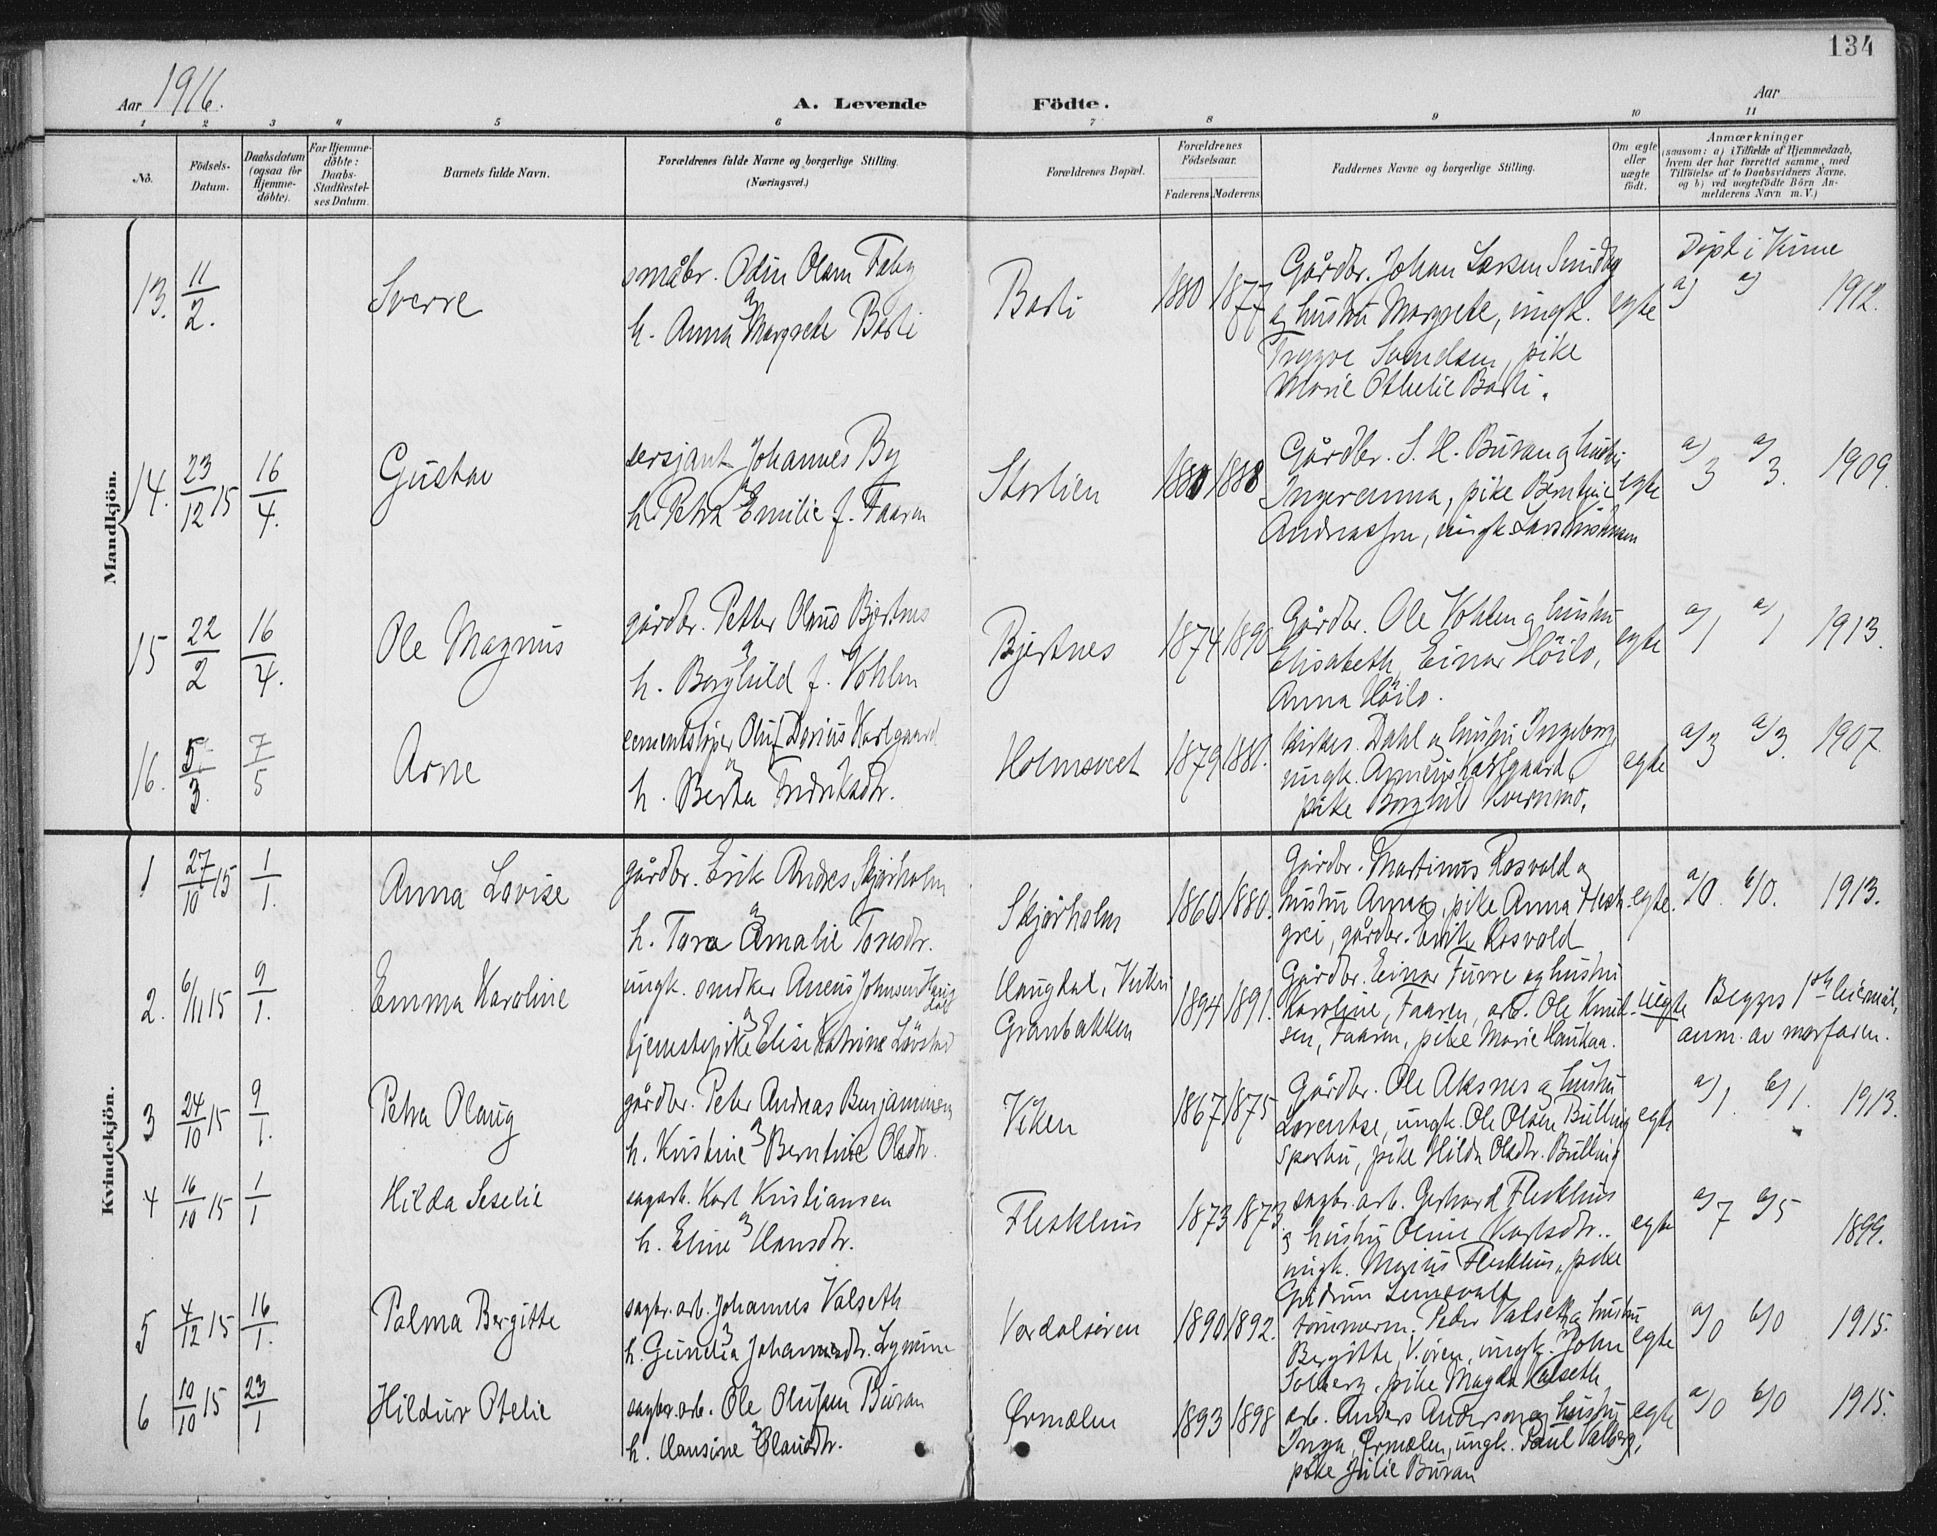 134
Aar 1916. A. Levende Födte. Aar
1 2 3 4 5 6 7 8 9 10 11
No. Födsels-Datum. Daabsdatum (ogsaa for Hjemme-döbte). For Hjemme-döbte: Daabs-Stadfæstel-ses Datum. Barnets fulde Navn. Forældrenes fulde Navne og borgerlige Stilling. (Næringsvei.) Forældrenes Bopæl. Forældrenes Födselsaar. Faderens Moderens Faddernes Navne og borgerlige Stilling. Om ægte eller uægte födt. Anmærkninger (saasom: a) i Tilfælde af Hjemmedaab, hvem der har forrettet samme, med Tilföielse af to Daabsvidners Navne, og b) ved uægtefödte Börn An-melderens Navn m. V.)
Mandkjön.
13. 11/2. Sverre
småbr. Odin Olsen Faby
h. Anna Margrete Barli
Barli 1880 1877
Gårdbr. Johan Larsen
og hustru Margrete, ungk.
Trygve Svendsen, pike
Marie Othelie Barli.
egte
Döpt i Vinne
a) 1912.
14. 23/12 15 16/4. Gustav
sersjant Johannes By
h. Petra Emilie f. Faaren
Storlien 1880 1888
Gårdbr. S. H. Buran og hustru
Ingeranna, pike Berntine
Andreassen, ungk.
egte
a/3 a/3. 1909.
15 22/2 16/4. Ole Magnus
gårdbr. Petter Olaus Bjertnes
h. Borghild f. Vohlen
Bjertnes 1874 1890
Gårdbr. Ole Vohlen og hustru
Elisabeth, Einar Höilo,
Anna Höilo.
egte
a/1 a/1 1913.
16. 5/3. 7/5 Arne
cementstøper Oluf Darius Karlgaard
h. Berta Fredriksdtr.
Holmsveet 1879 1881.
Kirkes. Dahl og hustru Ingeborg,
ungk. Arneus Karlgaard,
pike Borghild Kvernmo.
egte
a/3 a/3. 1907.
Kvindekjön.
1 27/10 15 1/1. Anna Lovise
gårdbr. Erik Andreas Skjørholm
h. Tora Amalie Toresdtr.
Skjørholm 1860 1880.
Gårdbr. Martinus Rosvold og
hustru Anna, pike Anna Hest-
grei, gårdbr. Erik Rosvold
egte.
a/0. b/0. 1913.
2. 6/11 15 9/1. Emma Karoline
ungk. snedker Aneus Johnsen
tjenestepike Elise Katrine Lövstad
Haugdal,
Granbakken 1894 1891.
Gårdbr. Einar Furre og hustru
Karoline, Faaren, arb. Ole Knud-
sen, Faaren, pike Marie Haukaa.
uegte
Begges 1ste leiermål,
anm. av morfaren.
3 24/10 15 9/1. Petra Olaug
gårdbr. Peter Andreas Benjaminsen
h. Kristine Berntine Olsdtr.
Viken 1867 1875
Gårdbr. Ole Aksnes og hustru
Lorentse, ungk. Ole Olsen Bulling
pike Hilda Olsdtr. Bulling
egte
a/1. b/1. 1913.
4 16/10 15 1/1 Hilda Seselie
sagarb. Karl Kristiansen
h. Eline Hansdtr.
Fleskhus 1873 1873
sagbr.arb. Gerhard Fleskhus
og hustru Oline Karlsdtr.,
ungk. Marius Fleskhus, pike
Gudrun
egte
a/7 b/5 1899.
5 4/12 15 16/1. Palma Bergitte
sagbr.arb. Johannes Valseth
h. Gunelia Johannesdtr.
Verdalsören 1890 1892.
tømmerm. Peder Valseth og hustru
Bergitte, V.ören, ungk. John
Solberg, pike Magda Valseth
egte
a/0 b/0 1915.
6 10/10 15 23/1 Hildur Otelie
sagbr.arb. Ole Olufsen Buran
h. Hansine Olausdtr.
Ørmælen 1893 1898
arb. Anders Anderson og hustru
Inga, Ørmælen, ungk. Paul Valberg,
pike Julie Buran
egte
a/0 b/0 1915.